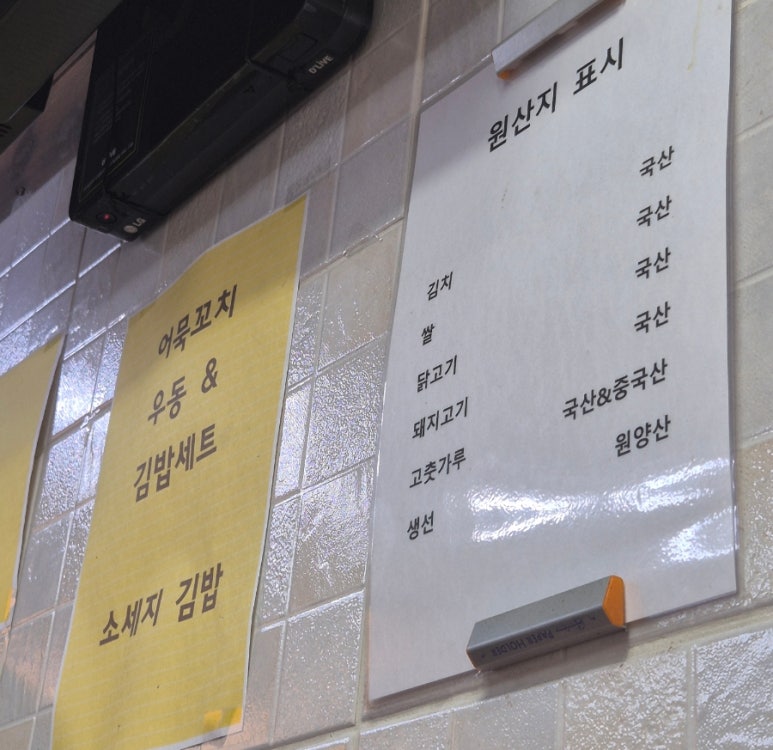 D'LIVE
LG
어묵꼬치
우동 &
김밥세트
소세지 김밥
원산지 표시
김치 국산
쌀 국산
닭고기 국산
돼지고기 국산
고춧가루 국산&중국산
생선 원양산
PAPER HOLDER